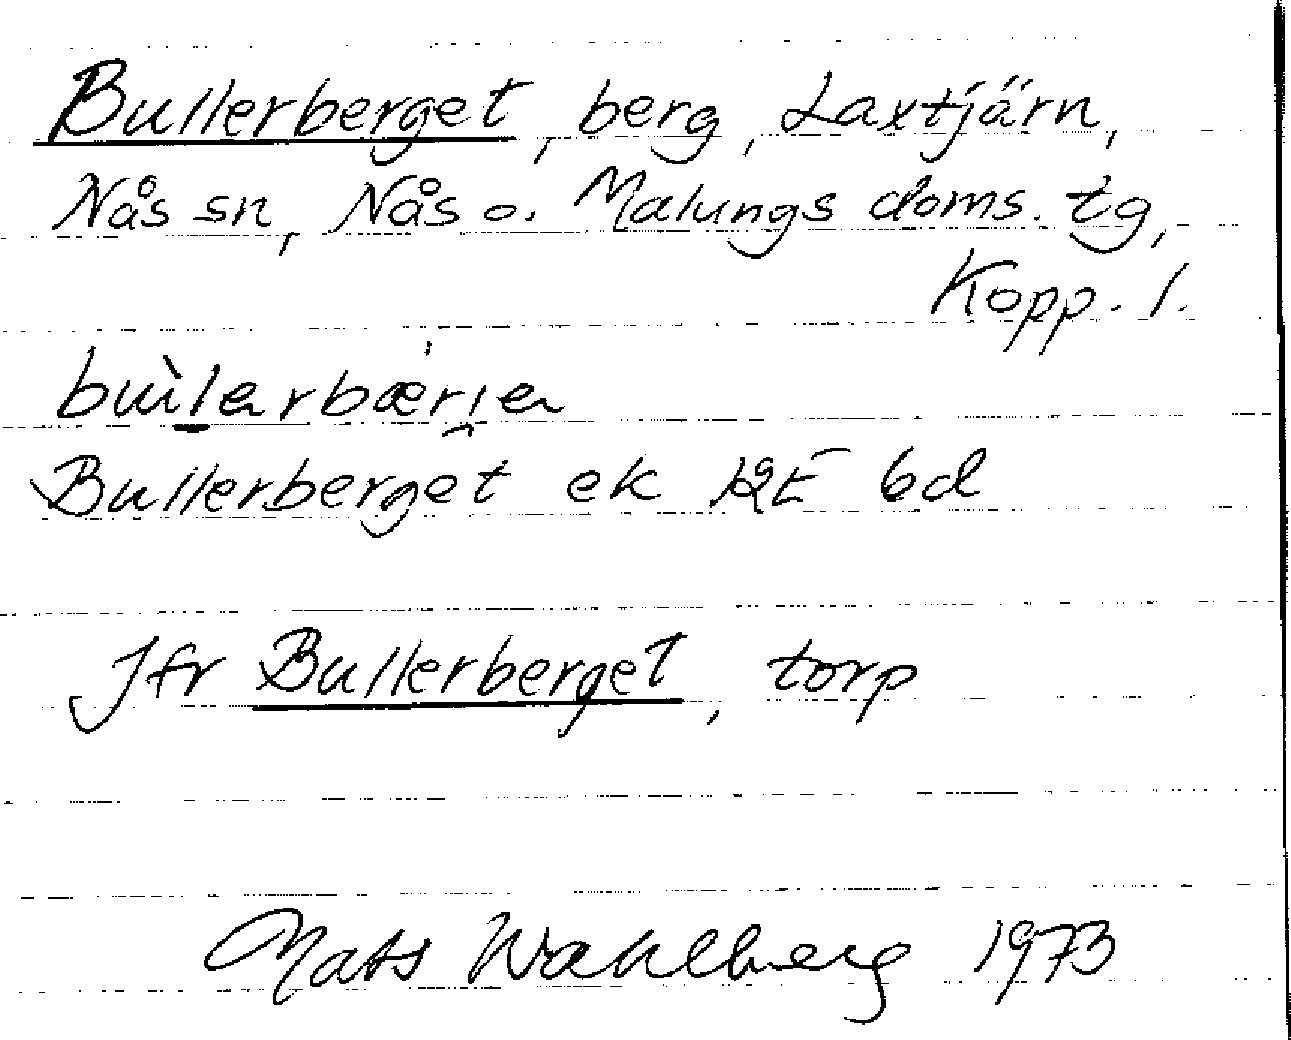 Bullerberget, berg, Laxtjärn,
Nås sn, Nås o. Malungs doms. tg,
Kopp. l.
Bullerberget ek 12E 6d
Jfr Bullerberget, torp
Mats Wahlberg 1973